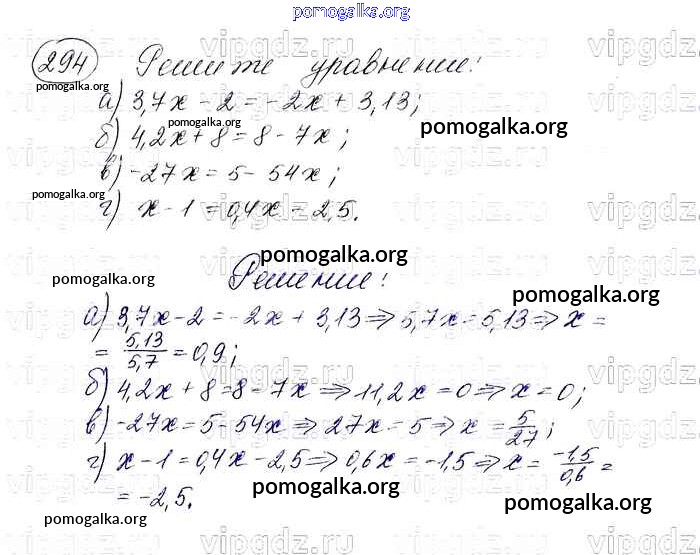 pomogalka.org
294 Решите уравнение:
pomogalka.org
а) 3,7x - 2 = -2x + 3,13;
pomogalka.org
б) 4,2x + 8 = 8 - 7x;
pomogalka.org
pomogalka.org
в) -27x = 5 - 54x;
pomogalka.org
г) x - 1 = 0,4x - 2,5.
pomogalka.org
Решение:
pomogalka.org
pomogalka.org
а) 3,7x - 2 = -2x + 3,13 ⇒ 5,7x = 5,13 ⇒ x =
= 5,13/5,7 = 0,9;
б) 4,2x + 8 = 8 - 7x ⇒ 11,2x = 0 ⇒ x = 0;
в) -27x = 5 - 54x ⇒ 27x = 5 ⇒ x = 5/27;
г) x - 1 = 0,4x - 2,5 ⇒ 0,6x = -1,5 ⇒ x = -1,5/0,6 =
= -2,5.
pomogalka.org
pomogalka.org
pomogalka.org
vipgdz.ru